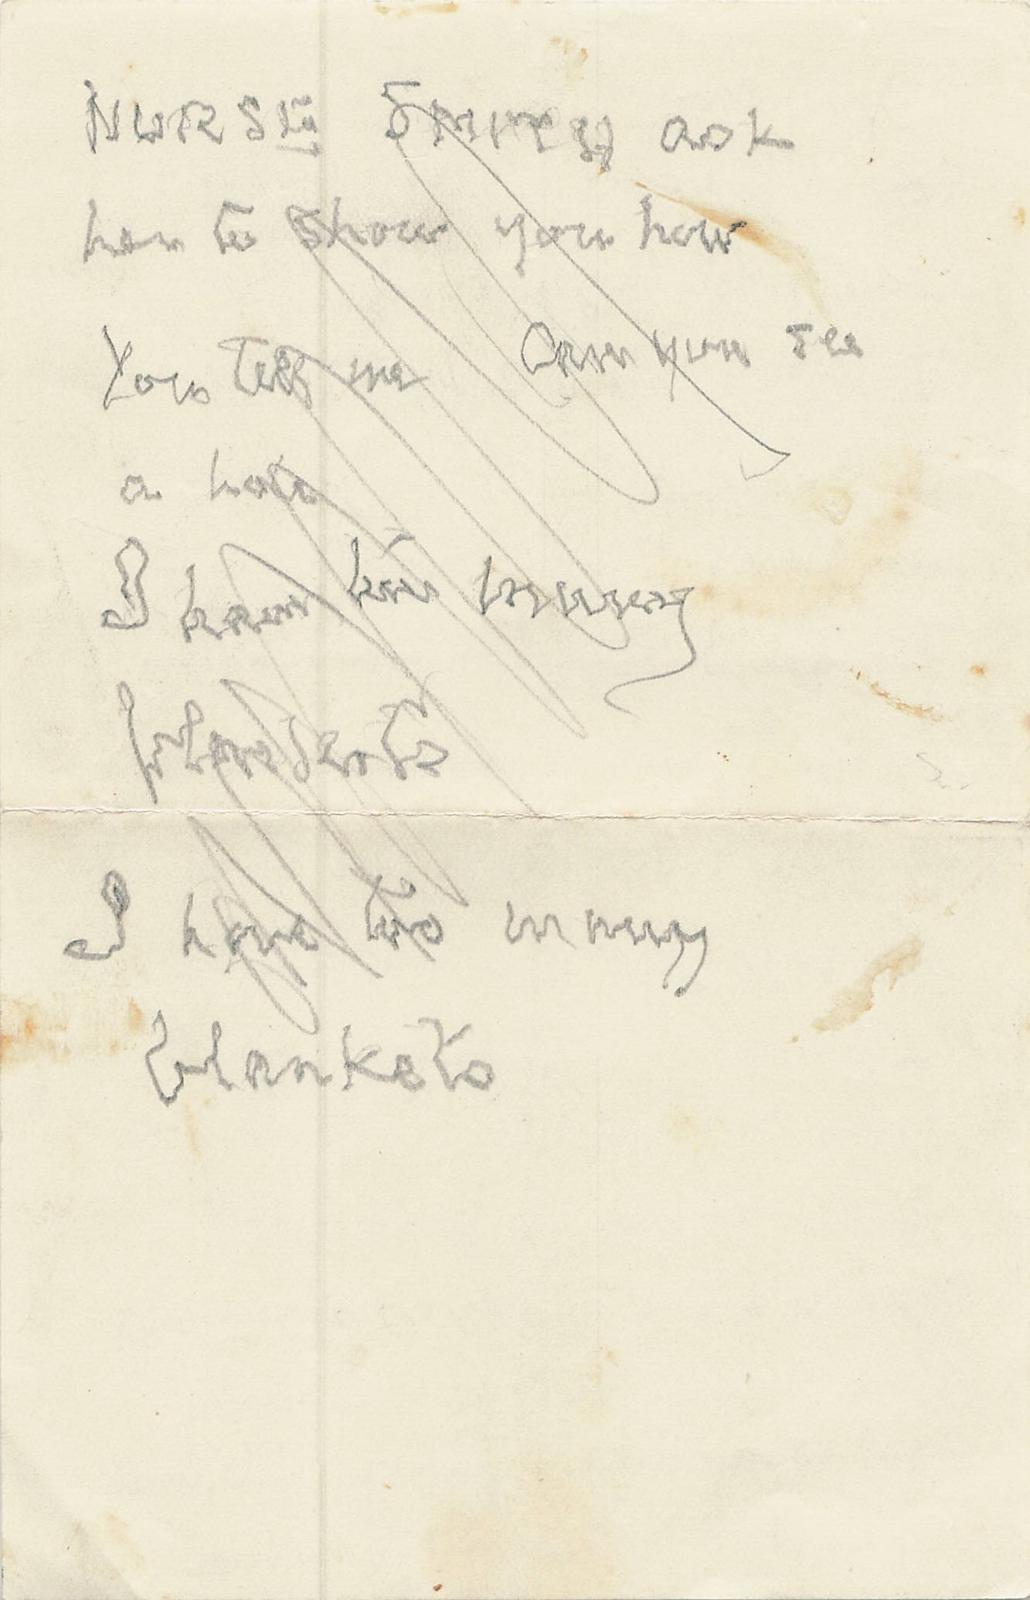 Nurse ask
her to show you how
You tell me Can you see
a
I have too many
blankets
I have too many
blankets